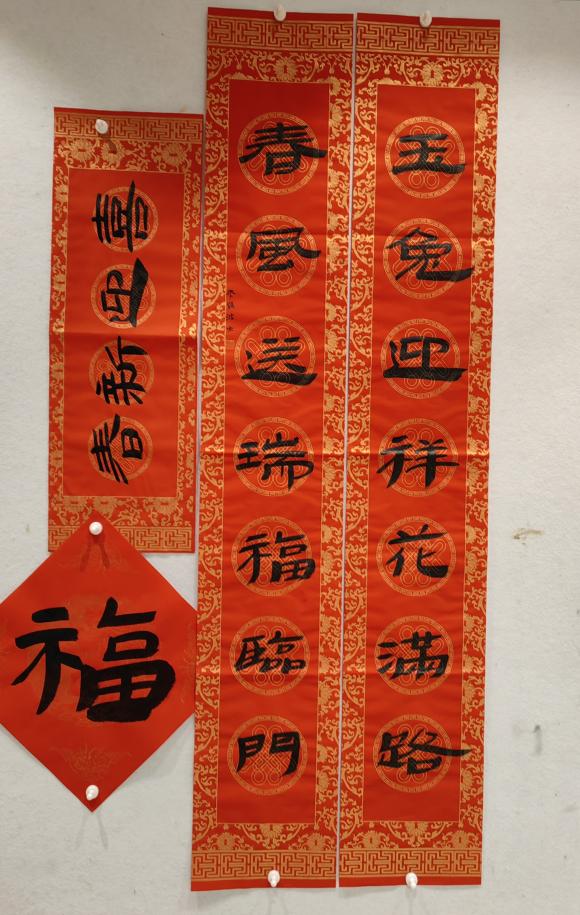 玉兔迎祥花滿路
春風送瑞福臨門
喜迎新春
福